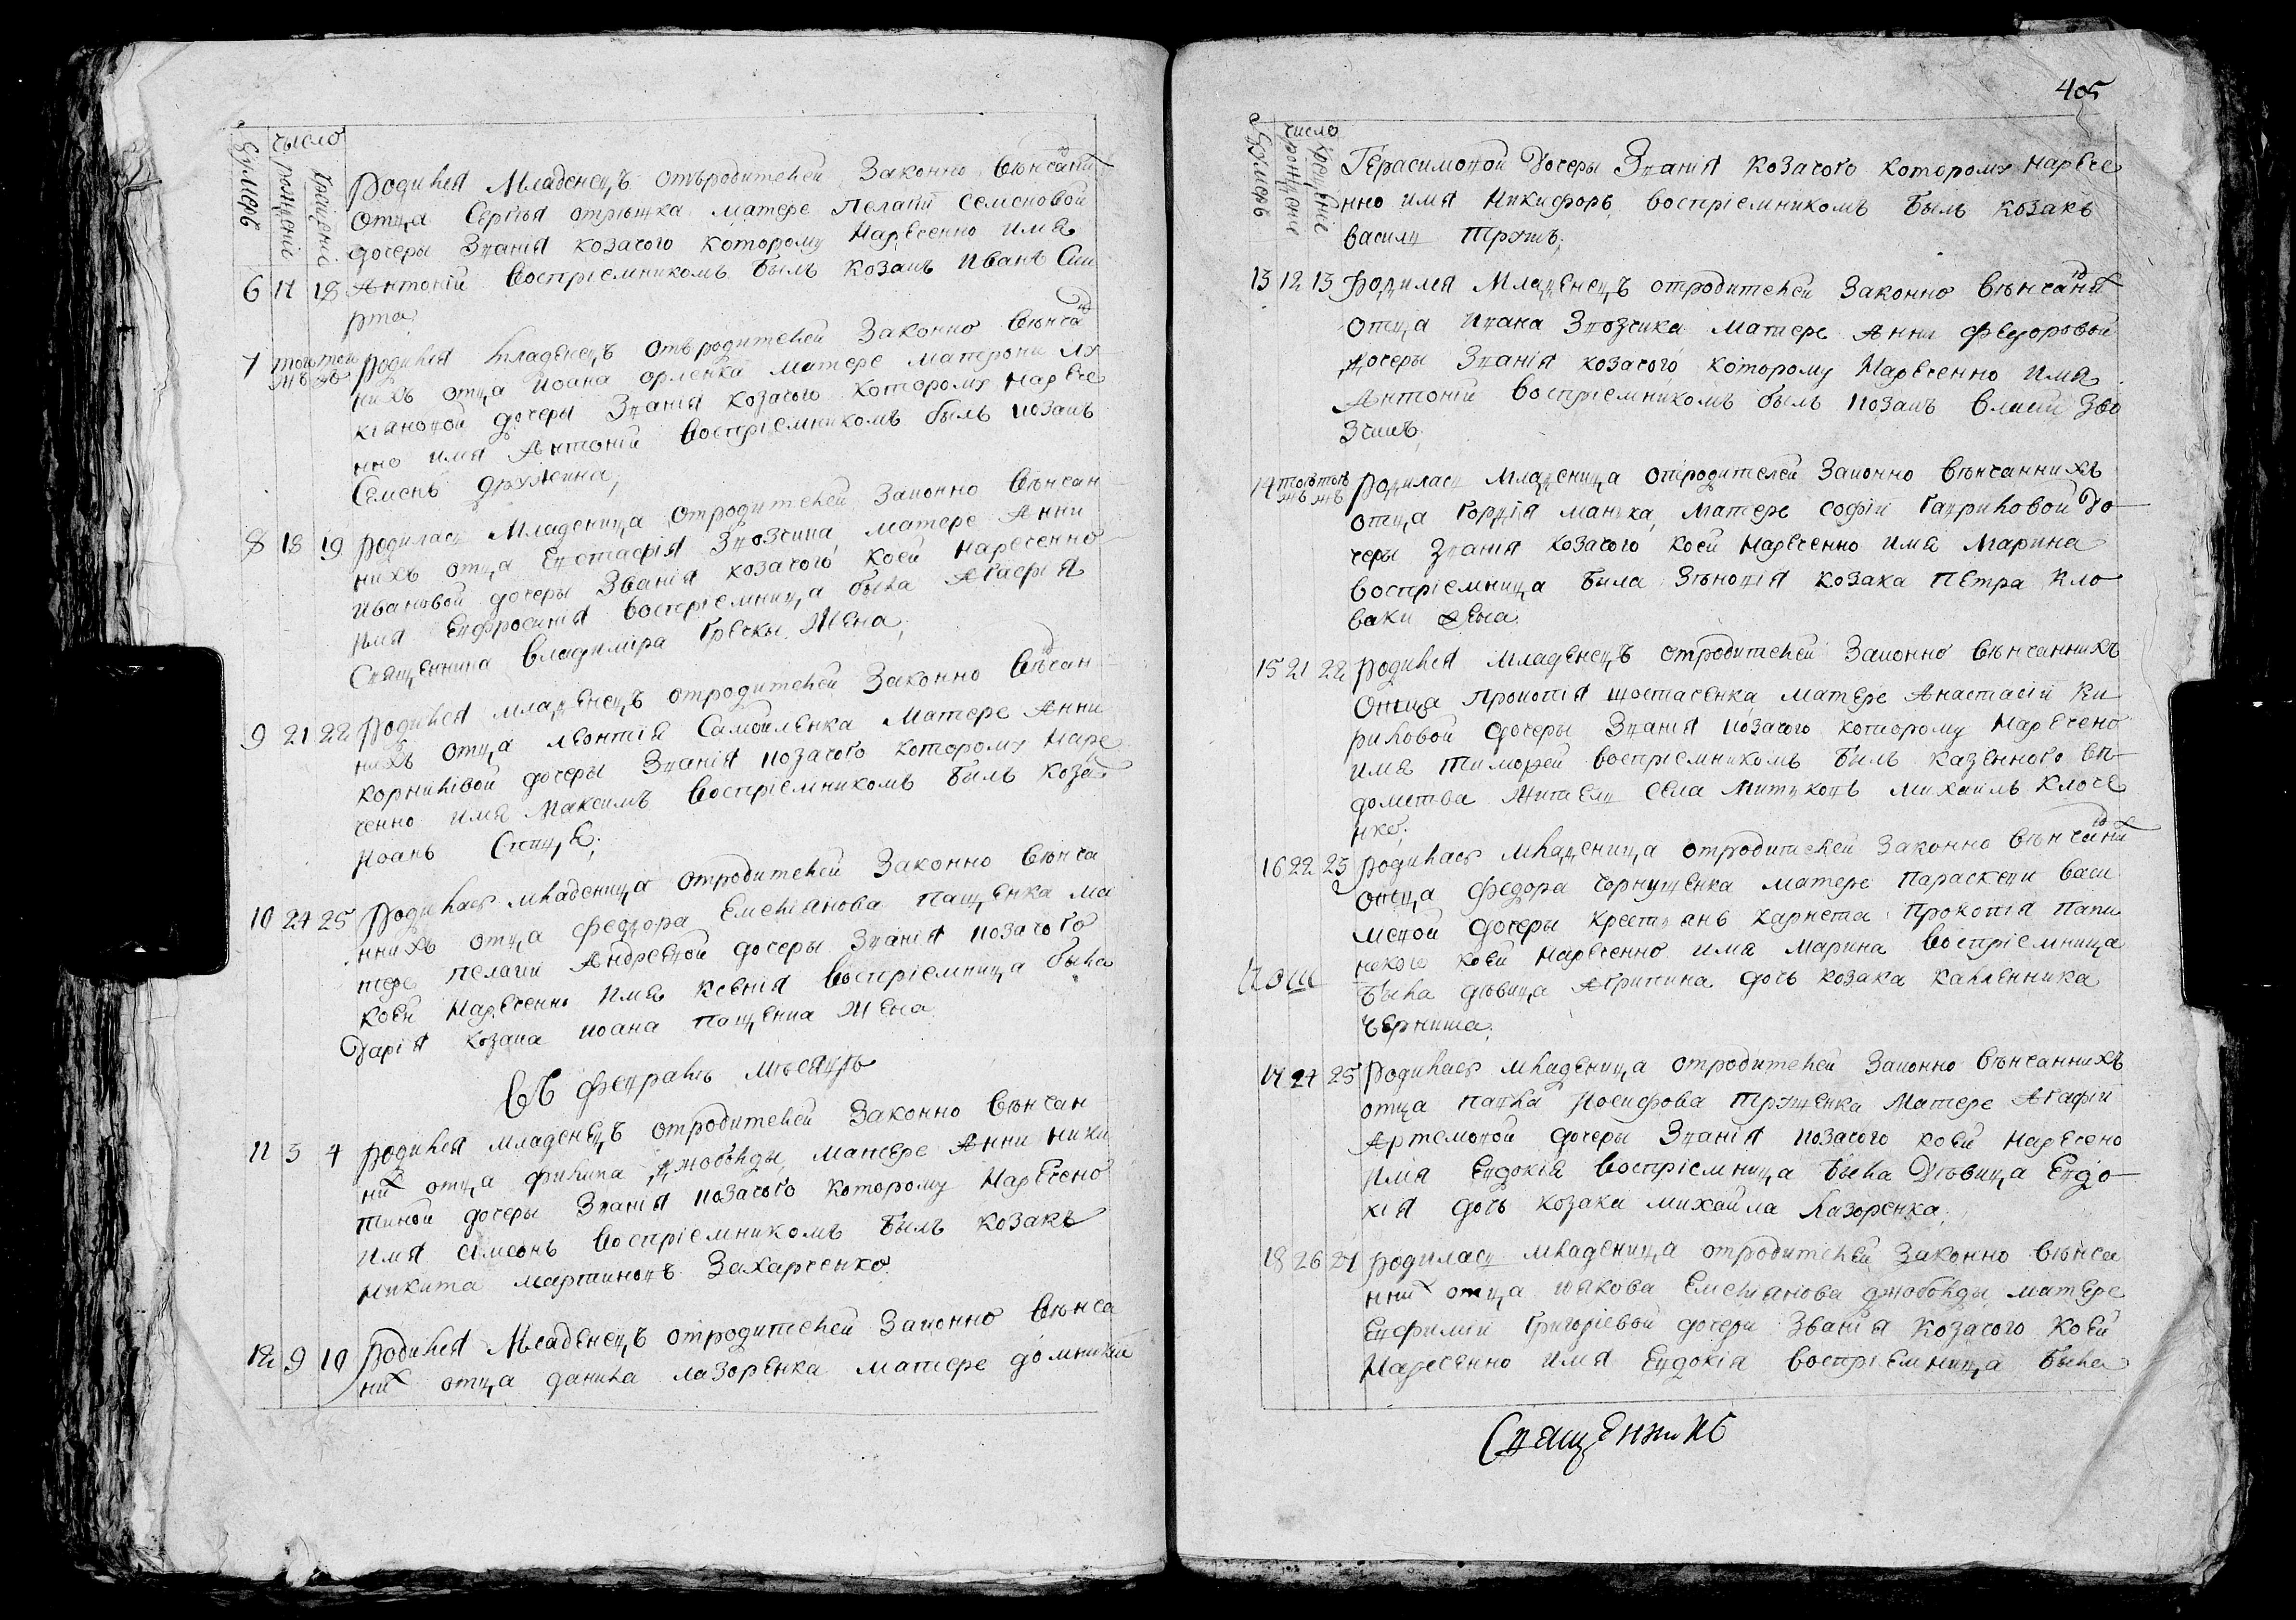 число
нумеръ рожденіе крещеніе
родился Младенецъ отъродителей Законно вѣнчаних
отца Сергѣя матере Пелагіи Семеновой
дочеры Званія козачого которому Наречено имя
6 17 18 Антоній воспріемникомъ былъ козакъ Иванъ Ски
рта
7 тогож тогож родился младенецъ отъродителей Законно вѣнча
нихъ отца Иоана орленка матере матрони Лу
кіяновой дочеры Званія козачого которому нарече
нно имя Антоній воспріемникомъ былъ козакъ
Семенъ дружина,
8 18 19 родилась Младеница отродителей Законно вѣнчан
нихъ отца Евстафія Звозчика матере Анни
Ивановой дочеры Званія козачого коей наречено
имя Евфросинія воспріемница была Агафія
Священника владиміра Гречки Жена,
9 21 22 Родился младенецъ отродителей Законно вѣчан
нихъ отца Леонтія Самойленка Матере Анни
корниловой дочеры Званія козачого которому Наре
ченно имя Максимъ воспріемникомъ былъ козакъ
Иоанъ Спица;
10 24 25 Родилась младеница отродителей Законно вѣнча
ннихъ отца федора Емеліянова Пащенка ма
тере Пелагіи Андреевой дочеры Званія козачого
коей Нареченно Имя ксенія воспріемница была
Дарія козака иоана Пащенка Жена
Въ февралѣ мѣсяцѣ
11 3 4 родился младенецъ отродителей Законно вѣнчан
них отца филипа Джобонды, матере Анни ники
тиной дочеры Званія козачого которому Наречено
имя Симеонъ воспріемникомъ былъ козакъ
Никита мартиновъ Захарченко.
12 9 10 родился Младенецъ отродителей Законно вѣнча
них отца данила лазоренка матере домникіи
405
число
нумеръ рожденіе крещеніе
Герасимовой Дочеры Званія козачого которому нарече
нно имя Никифоръ, воспріемникомъ былъ козакъ
василь Трушъ;
13 12 13 родился Младенецъ отродителей Законно вѣнчаних
отца Ивана Звозчика матере Анни федоровой
дочеры Званія козачого которому Наречено имя
Антоній воспріемникомъ былъ козакъ власій Зво
Зчикъ,
14 тогож тогож родилась Младеница отродителей Законно вѣнчаннихъ
отца Гордія манька, матере софіи Гавриловой До
черы званія козачого коей Нареченно имя Марина
воспріемница была Зѣновія козака Петра Кло
ваки жена
15 21 22 родился младенецъ отродителей Законно вѣнчаннихъ
Отца Прокопія Шостаченка матере Анастасіи Ки
риловой дочеры Званія козачого которому Наречено
имя Тимофей воспріемникомъ былъ казенного вѣ
домства Житель села Митьковъ Михаилъ Клоче
нко;
16 22 23 родилась младеница отродителей законно вѣнчаних
отца федора Чорнущенка матере параскеви васи
лиевой дочеры крестянъ Прокопія
коей нареченно имя Марина воспріемница
была дѣвица Агрипина дочь козака
Черниша.
17 24 25 родилась младеница отродителей Законно вѣнчаннихъ
отца павла Иосифова Трущенка Матере Агафіи
Артемовой дочеры Званія козачого коей наречено
Имя Евдокія воспріемница была Дѣвица Евдо
кія дочь козака михайла Лазоренка.
18 26 27 родилась младеница отродителей законно вѣнча
нних отца иякова Емеліянова джобонды матере
Евфиміи Григоріевой дочери Званія козачого коей
Нареченно имя Евдокія воспріемница была
Священникъ